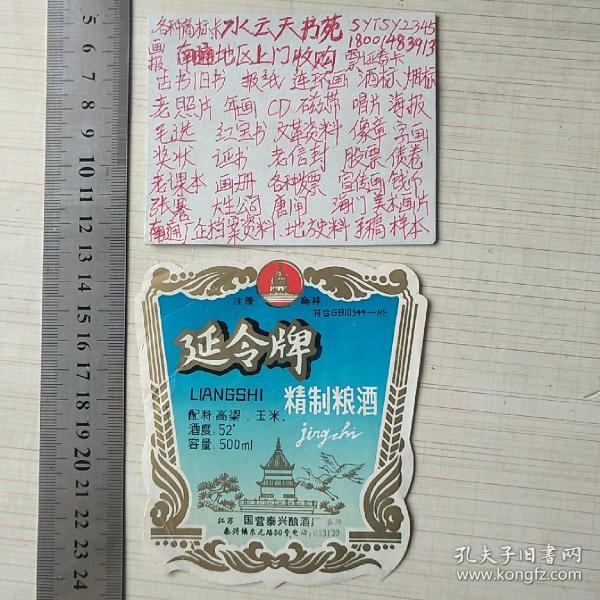 各种商标卡 水云天书苑 SYTSY2345
画报 南通地区上门收购 18001483913
古书旧书 报纸 连环画 酒标 烟标
老照片 年画 CD 磁带 唱片 海报
毛选 红宝书 文革资料 像章 字画
奖状 证书 老信封 股票 债卷
老课本 画册 各种发票 宣传画 钱币
张謇 大生公司 唐闸 海门美术画片
南通厂企档案资料 地方史料 手稿 样本
注册 商标
符合GB10344-89
延令牌
LIANGSHI 精制粮酒
配料:高粱、玉米.
jingzhi
酒度:52°
容量:500ml
江苏 国营泰兴酿酒厂
泰兴镇东元路50号,电话:
5 6 7 8 9 10 11 12 13 14 15 16 17 18 19 20 21 22 23 24
孔夫子旧书网
www.kongfz.com